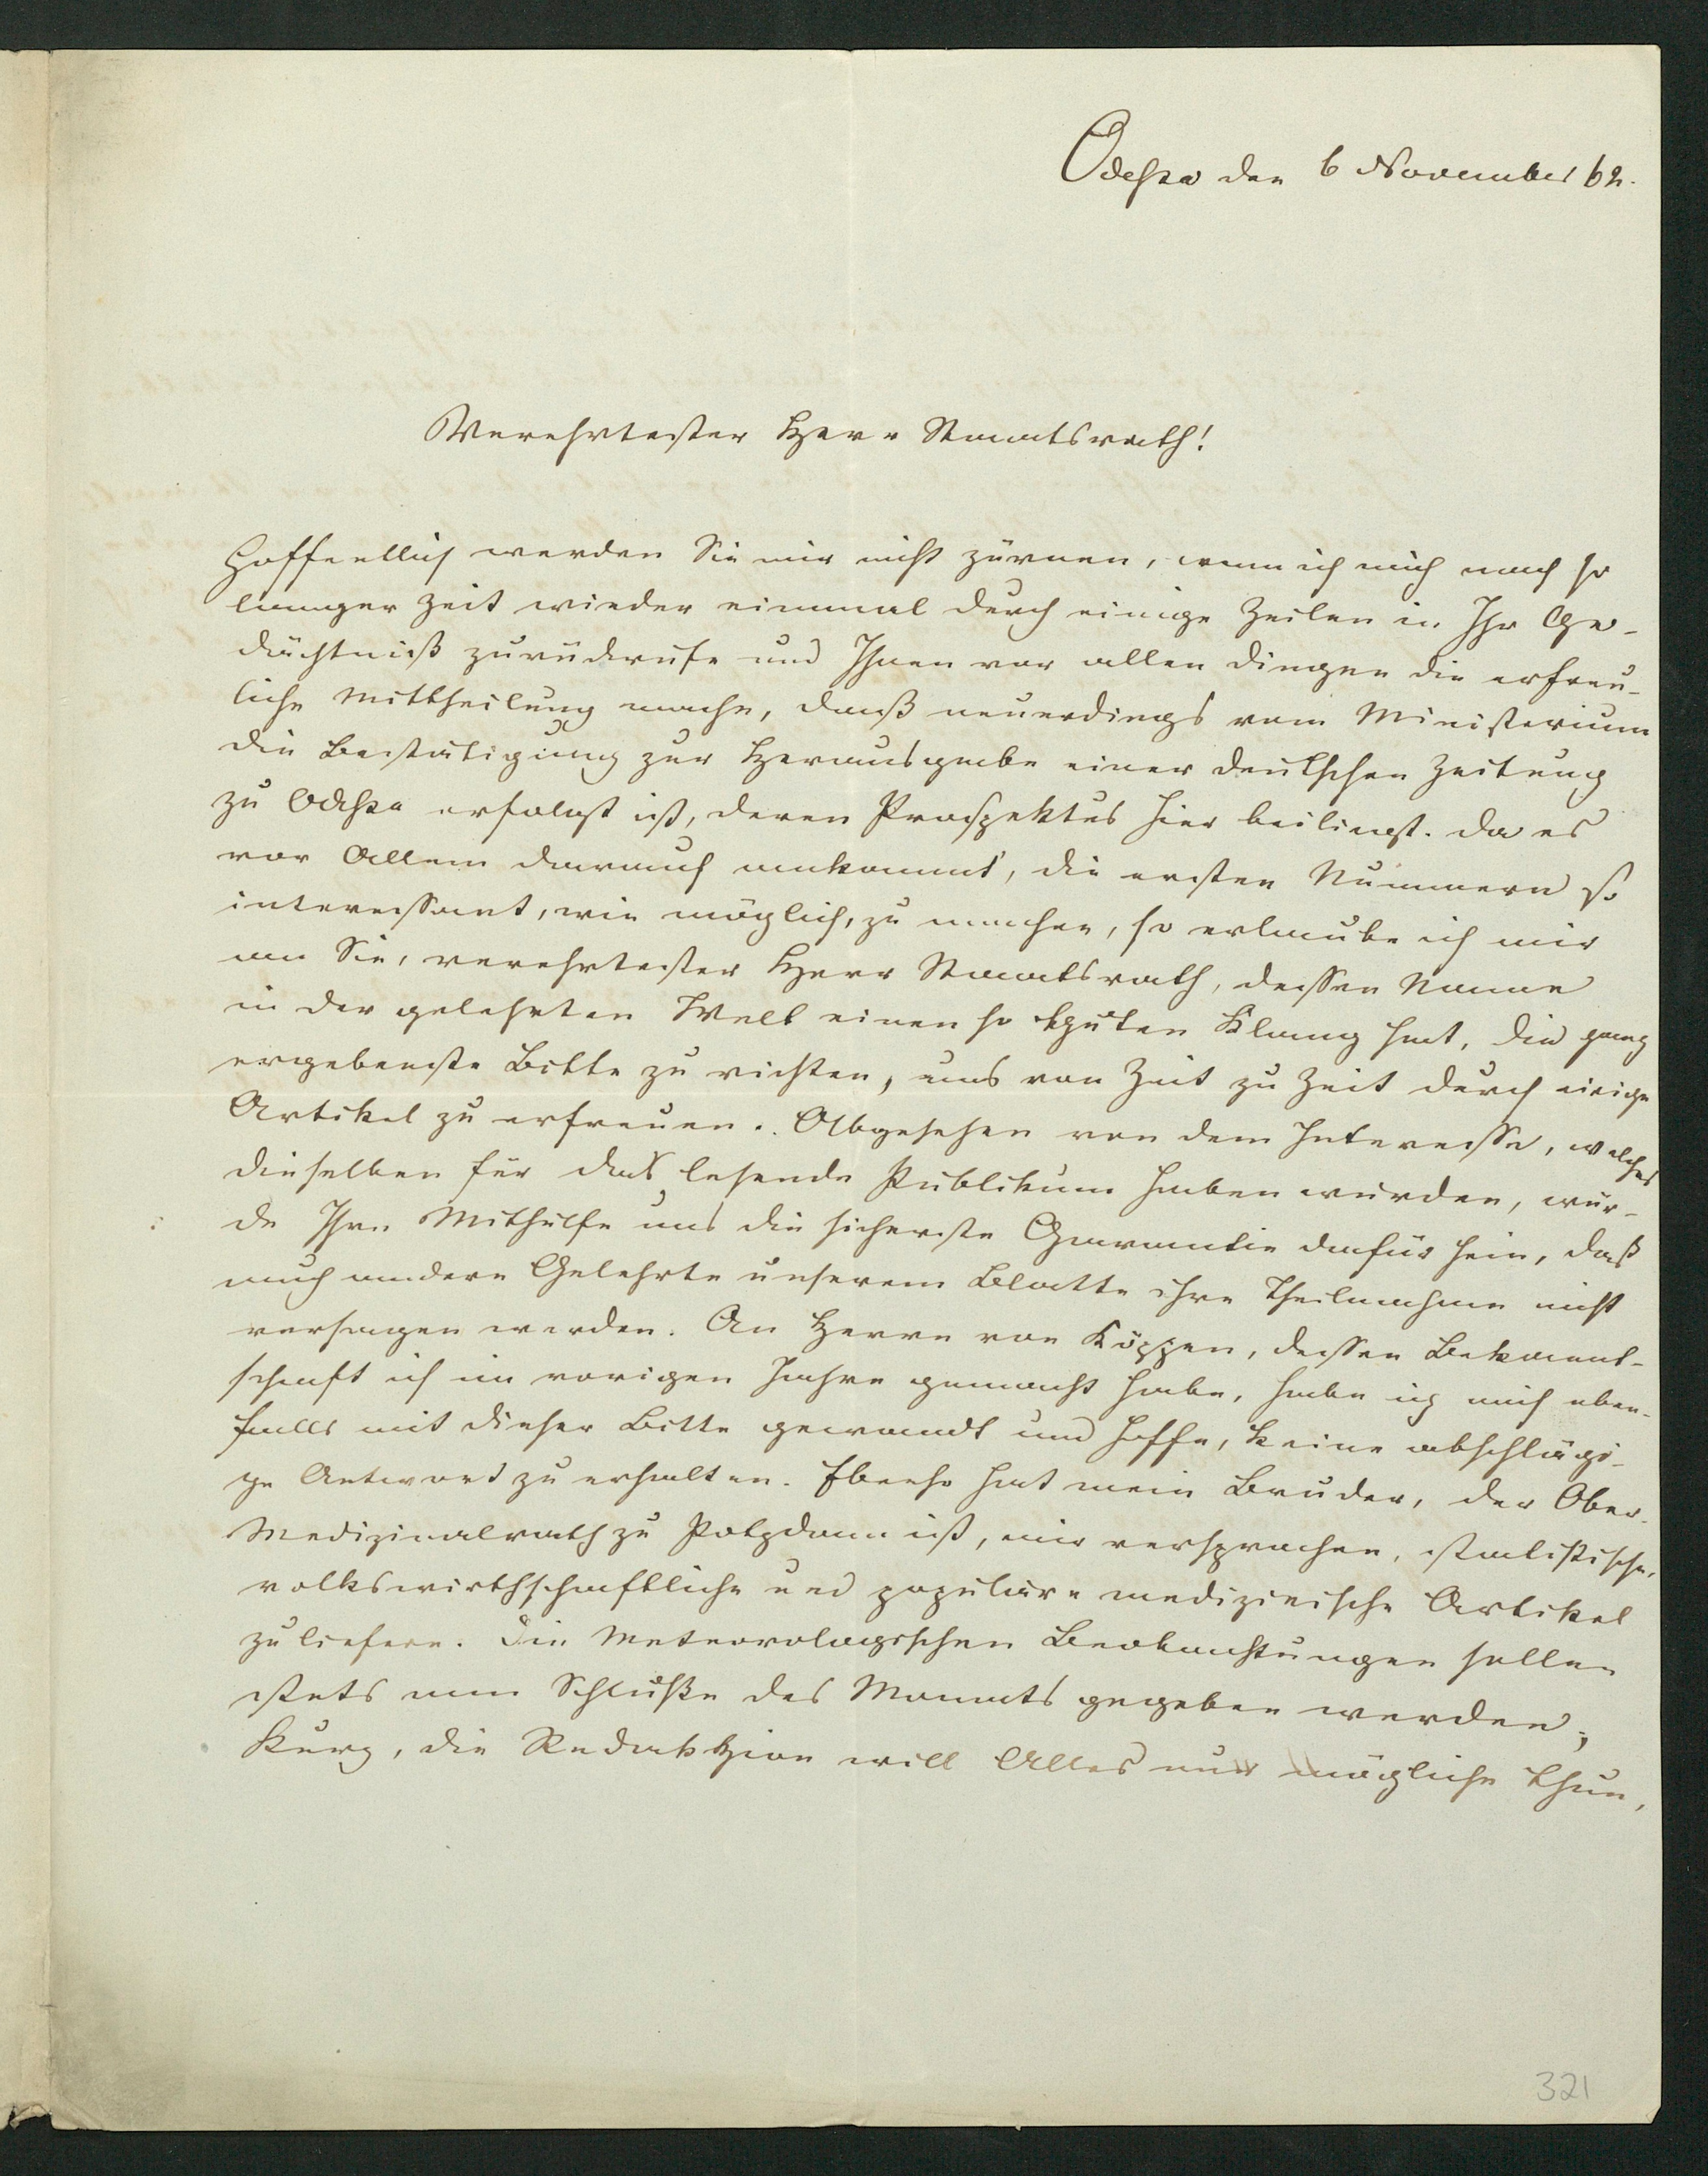 Odessa den 6 November 62.
Verehrtester Herr Staatsrath!
Hoffentlich werden Sie mir nicht zürnen, wenn ich mich nach so
langer Zeit wieder einmal durch einige Zeilen in Ihr Ge-
dächtniß zurückrufe und Ihnen vor allen Dingen die erfreu-
liche Mittheilung mache, daß neuerdings vom Ministerium
die Bestätigung zur Herausgabe einer deutschen Zeitung
zu Odessa erfolgt ist, deren Prospektus hier beiliegt. Da es
vor Allem darauf ankommt, die ersten Nummern so
interessant, wie möglich, zu machen, so erlaube ich mir
an Sie, verehrtester Herr Staatsrath, dessen Name
in der gelehrten Welt einen so guten Klang hat, die ganz
ergebenste Bitte zu richten, uns von Zeit zu Zeit durch einige
Artikel zu erfreuen. Abgesehen von dem Interesse, welches
dieselben für das lesende Publikum haben würden, wür-
de Ihre Mithülfe uns die sicherste Garantie dafür sein, daß
auch andere Gelehrte unserem Blatte ihre Theilnahme nicht
versagen werden. An Herrn von Köppen, dessen Bekannt-
schaft ich im vorigen Jahre gemacht habe, habe ich mich eben-
falls mit dieser Bitte gewandt und hoffe, keine abschlägi-
ge Antwort zu erhalten. Ebenso hat mein Bruder, der Ober-
Medizinalrath zu Potzdam ist, mir versprochen, statistische,
volkswirthschaftliche und populäre medizinische Artikel
zu liefern. Die Meteorologischen Beobachtungen sollen
stets am Schluße des Monats gegeben werden;
Kurz, die Redakzion will Alles nur mögliche thun,
321